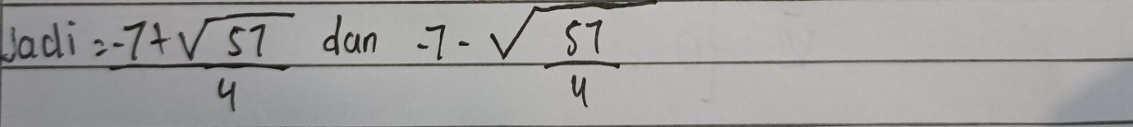 Jadi = (-7+√57)/4 dan -7-√(57/4)